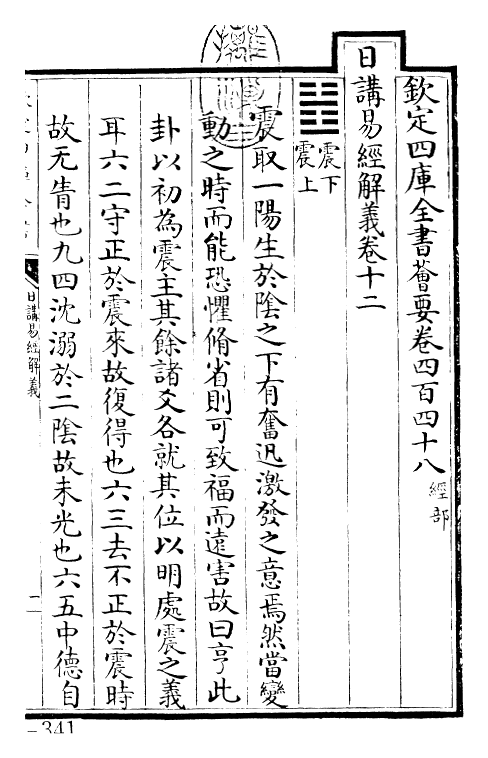 欽定四庫全書薈要卷四百四十八 經部
日講易經解義卷十二
䷲ 震下震上
震取一陽生於陰之下有奮迅激發之意焉然當變
動之時而能恐懼脩省則可致福而遠害故曰亨此
卦以初為震主其餘諸爻各就其位以明處震之義
耳六二守正於震來故復得也六三去不正於震時
故无眚也九四沈溺於二陰故未光也六五中德自
日講易經解義
二
341